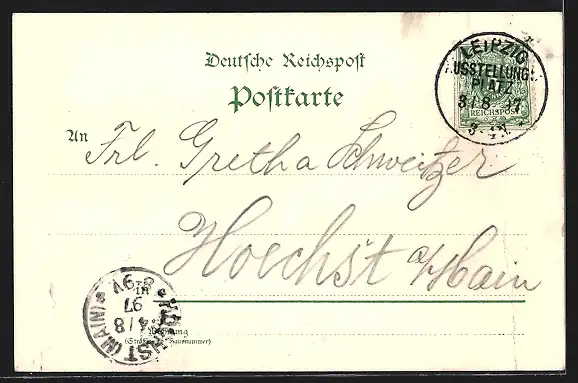 Deutsche Reichspost
Postkarte
LEIPZIG
AUSSTELLUNGS
PLATZ
3/8 97
3-4N.
REICHSPOST
An
Frl. Gretha Schweitzer
Hoechst a/Main
HÖCHST (MAIN)
4/8
97
Wohnung
(Straße und Hausnummer)